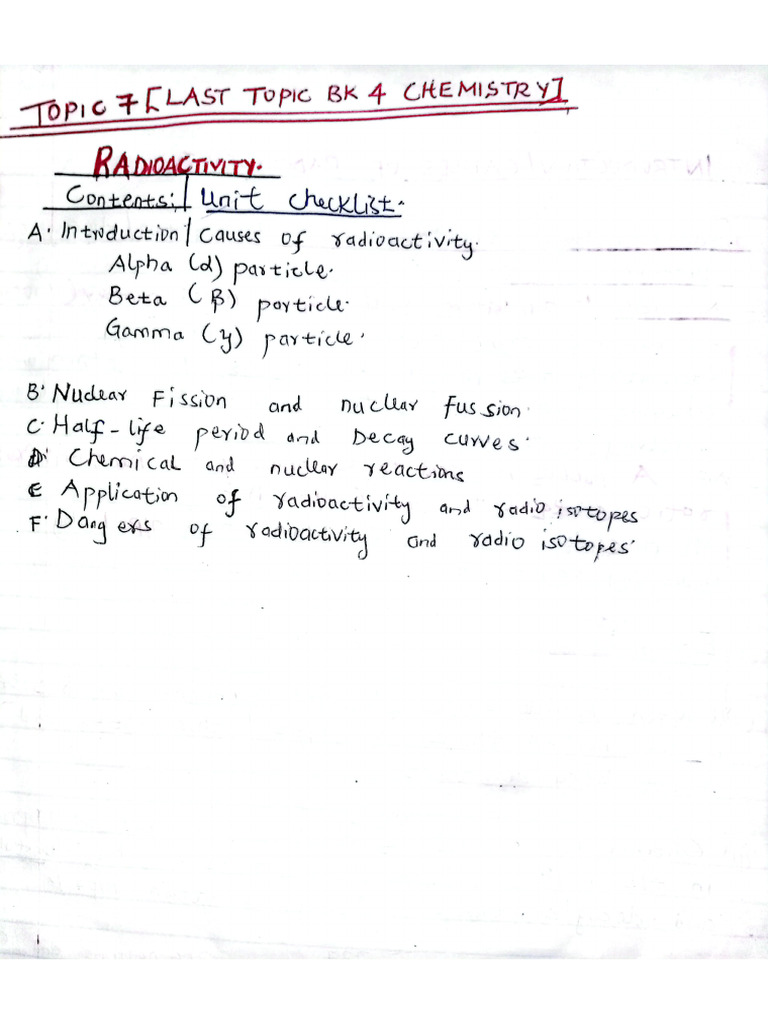 TOPIC 7 [LAST TOPIC BK 4 CHEMISTRY]
RADIOACTIVITY.
Contents:/ Unit Checklist.
A. Introduction/ Causes of radioactivity.
Alpha (α) particle.
Beta (β) particle.
Gamma (γ) particle.
B. Nuclear Fission and nuclear fussion.
C. Half-life period and Decay curves.
D. Chemical and nuclear reactions
E Application of radioactivity and radio isotopes
F. Dangers of radioactivity and radio isotopes.